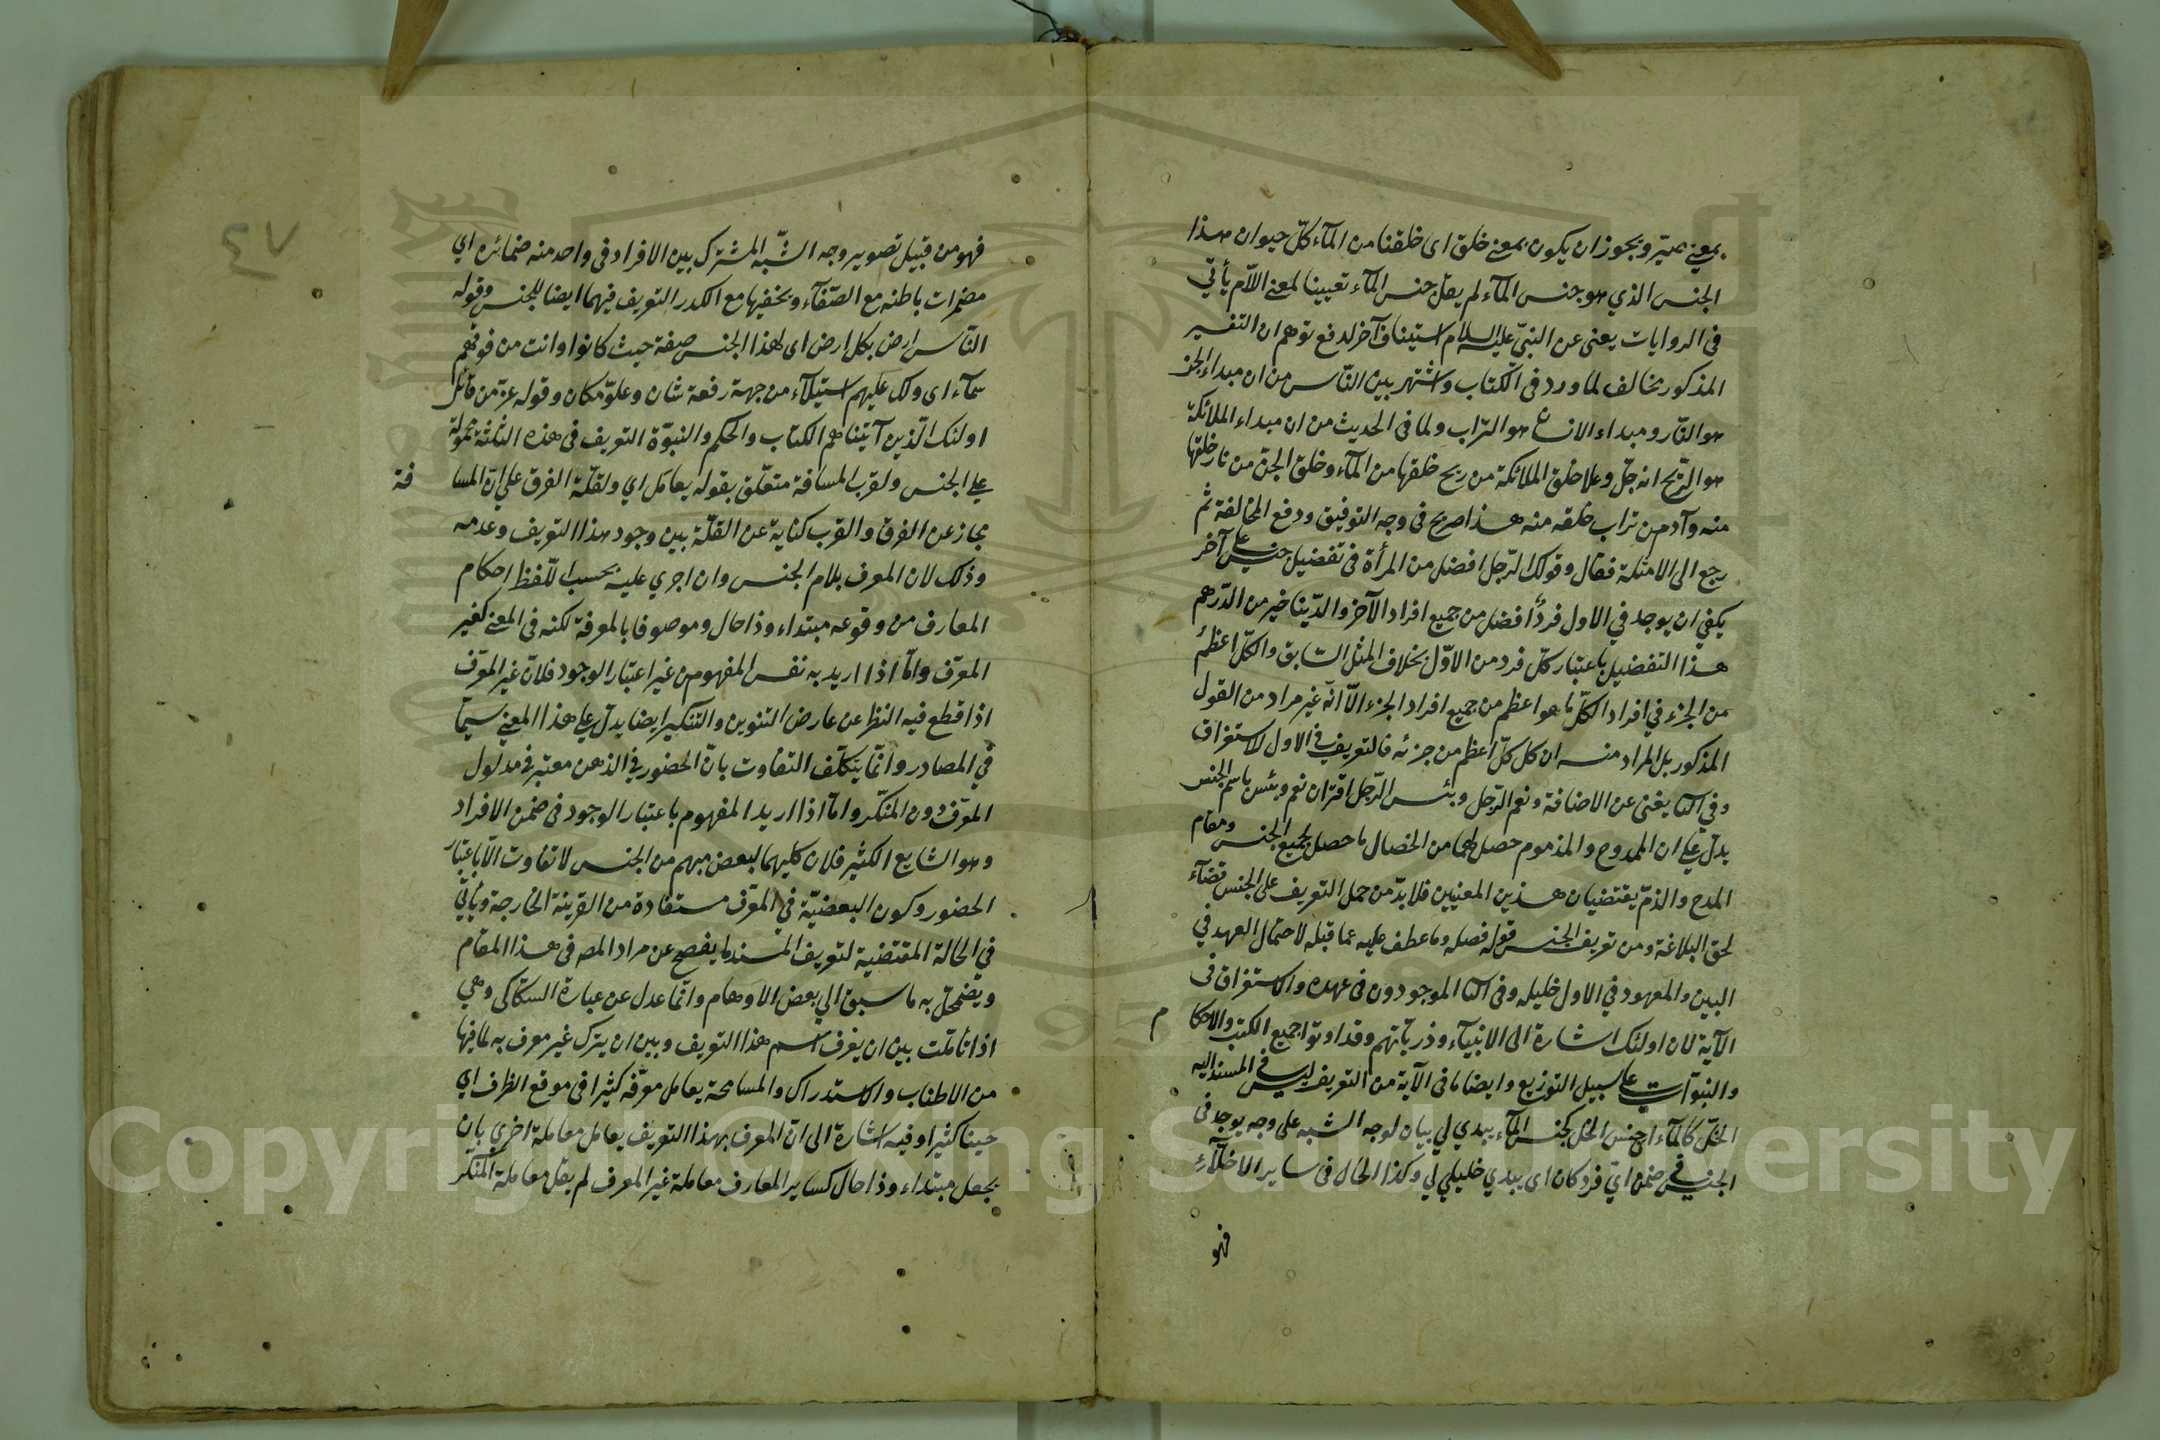 بمعنى صير ويجوز ان يكون بمعنى خلق اى خلقنا من المآء كلّ حيوان هذا
الجنس الذي هو جنس المآء لم يقل جنس المآء تعيينا لمعنى اللّام يأتي
في الروايات يعني عن النبيّ عليه السلام استيناف آخر لدفع توهم ان التفسير
المذكور مخالف لما ورد في الكتاب واشتهر بين النّاس من ان مبداء الجن
هو النّار ومبداء الانسان هو التراب ولما في الحديث من ان مبداء الملائكة
هو الرّيح انه جلّ وعلا خلق الملائكة من ريح خلقها من المآء وخلق الجنّ من نار خلقها
منه وآدم من تراب خلقه منه هذا صريح في وجه التوفيق ودفع المخالفة ثم
رجع الى الامثلة فقال وقولك الرّجل افضل من المرأة في تفضيل جنس على آخر
يكفي ان يوجد في الاول فردٌ افضل من جميع افراد الآخر والدّينار خير من الدّرهم
هذا التفضيل باعتبار كلّ فرد من الاوّل بخلاف المثل السّابق والكلّ اعظم
من الجزء في افراد الكلّ ما هو اعظم من جميع افراد الجزء الّا انّه غير مراد من القول
المذكور بل المراد منه ان كل كلّ اعظم من جزئه فالتعريف في الاول للاستغراق
وفي الثا يغني عن الاضافة ونعم الرّجل وبئس الرّجل اقتران نعم وبئس باسم الجنس
يدلّ على ان الممدوح والمذموم حصل لهما من الخصال ما حصل لجميع الجنس ومقام
المدح والذمّ يقتضيان هذين المعنيين فلا بدّ من حمل التعريف على الجنس قضآء
لحق البلاغة ومن تعريف الجنس قوله فصله وما عطف عليه عما قبله لاحتمال العهد في
البين والمعهود في الاول خليله وفي الثا الموجودون في عهده والاستغراق في
الآية لان اولئك اشارة الى الانبيآء وذريّاتهم وقد اوتوا جميع الكتب والاحكا م
والنبوّات على سبيل التوزيع وايضا ما في الآية من التعريف ليس في المسند اليه
الخلّ كالمآء اى جنس الخلّ كجنس المآء يبدي لي بيان لوجه الشبه على وجه يوجد في
الجنس في ضمن ايّ فرد كان اى يبدي خليلي لي وكذا الحال في ساير الاخلّآء
فهو
٤٧
فهو من قبيل تصوير وجه الشّبه المشترك بين الافراد في واحد منه ضمائره اي
مضمرات باطنه مع الصّفآء ويخفيها مع الكدر التعريف فيهما ايضا للجنس وقوله
النّاس ارض بكل ارض اى لهذا الجنس صفة حيث كانوا وانت من فوقهم
سمآء اى ولك عليهم استيلآء من جهة رفعة شان وعلوّ مكان وقوله عزّ من قائل
اولئك الّذين آتيناهم الكتاب والحكم والنبوّة التعريف في هذه الثلثة محمولة
على الجنس ولقرب المسافة متعلّق بقوله يعامل اي ولقلّة الفرق على انّ المسا فة
مجاز عن الفرق والقرب كناية عن القلّة بين وجود هذا التعريف وعدمه
وذلك لان المعرف بلام الجنس وان اجري عليه بحسب اللّفظ احكام
المعارف من وقوعه مبتداء وذا حال وموصوفا بالمعرفة لكنه في المعنى كغير
المعرّف وامّا اذا اريد به نفس المفهوم من غير اعتبار الوجود فلانّ غير المعرّف
اذا قطع فيه النظر عن عارض التنوين والتنكير ايضا يدلّ على هذا المعنى سيّما
في المصادر وانّما يتكلّف التفاوت بانّ الحضور في الذهن معتبر في مدلول
المعرّف دون المنكّر وامّا اذا اريد المفهوم باعتبار الوجود في ضمن الافراد
وهو الشايع الكثير فلان كليهما لبعض مبهم من الجنس لا تفاوت الّا باعتبار
الحضور وكون البعضيّة في المعرّف مستفادة من القرينة الخارجة ويأتي
في الحالة المقتضية لتعريف المسند ما يفصح عن مراد المصه في هذا المقام
ويضمحلّ به ما سبق الي بعض الاوهام وانّما عدل عن عبارة السكّاكي وهي
اذا تأملت بين ان يعرف اسم هذا التعريف وبين ان يترك غير معرف به لما فيها
من الاطناب والاستدراك والمسامحة يعامل معرّفه كثيرا في موقع الظرف اي
حينا كثيرا وفيه اشارة الى انّ المعرف بهذا التعريف يعامل معاملة اخري بان
يجعل مبتداء وذا حال كساير المعارف معاملة غير المعرف لم يقل معاملة المنكر